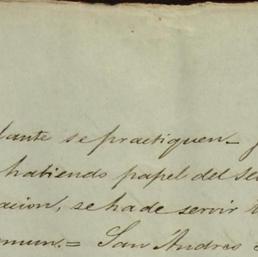 lante se practiquen_
habiendo papel del se
acion, se ha de servir
mun.= San Andres